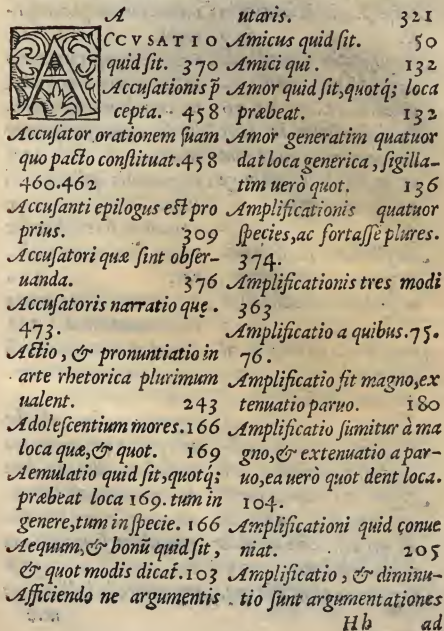 A
ACCVSATIO
quid sit. 370
Accusationis p̄
cepta. 458
Accusator orationem suam
quo pacto constituat. 458
460. 462
Accusanti epilogus est pro
prius. 309
Accusatori quæ sint obser-
uanda. 376
Accusatoris narratio quę.
473.
Actio, & pronuntiatio in
arte rhetorica plurimum
ualent. 243
Adolescentium mores. 166
loca quæ, & quot. 169
Aemulatio quid sit, quotq́;
præbeat loca 169. tum in
genere, tum in specie. 166
Aequum, & bonũ quid sit,
& quot modis dicat̃. 103
Afficiendo ne argumentis
utaris. 321
Amicus quid sit. 50
Amici qui. 132
Amor quid sit, quotq́; loca
præbeat. 132
Amor generatim quatuor
dat loca generica, sigilla-
tim uerò quot. 136
Amplificationis quatuor
species, ac fortassè plures.
374.
Amplificationis tres modi
363
Amplificatio a quibus. 75.
76.
Amplificatio fit magno, ex
tenuatio paruo. 180
Amplificatio sumitur à ma
gno, & extenuatio a par-
uo, ea uerò quot dent loca.
104.
Amplificationi quid conue
niat. 205
Amplificatio, & diminu-
tio sunt argumentationes
Hh ad